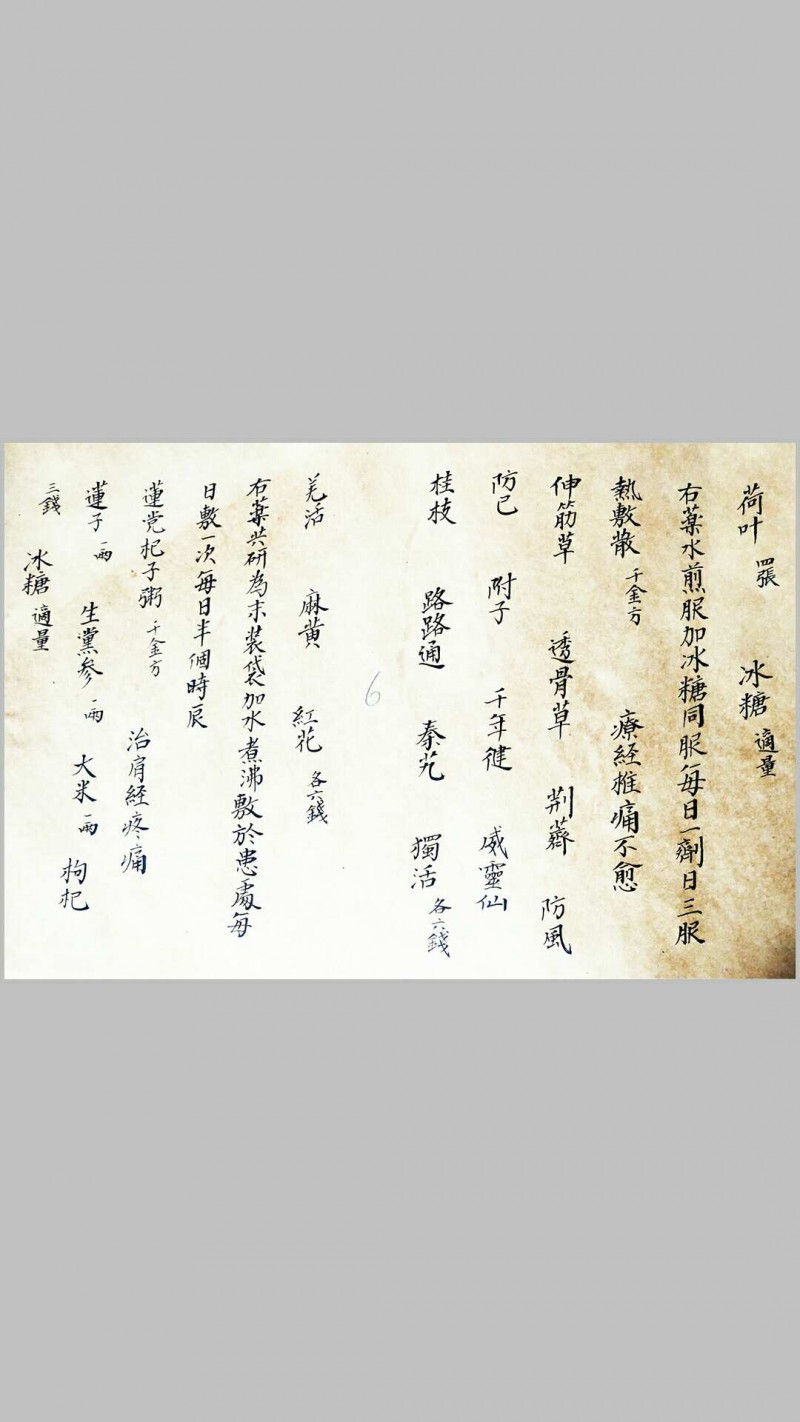 荷叶 四張 冰糖 適量
右藥水煎服加冰糖同服每日一劑日三服
熱敷散 千金方 療経椎痛不愈
伸筋草 透骨草 荆薺 防風
防已 附子 千年健 威靈仙
桂枝 路路通 秦艽 獨活 各六錢
6
羌活 麻黄 紅花 各六錢
右藥共研為末装袋加水煮沸敷於患處每
日敷一次每日半個時辰
蓮党杞子粥 千金方 治肩経疼痛
蓮子 一両 生黨参 一両 大米 一両 枸杞
三錢 冰糖 適量